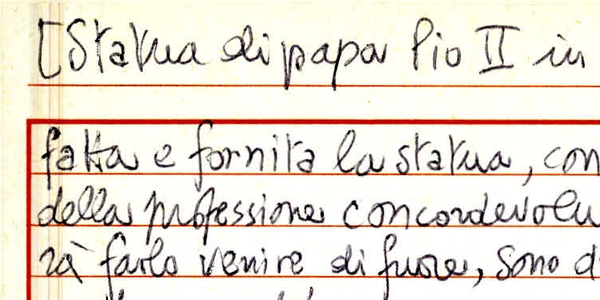 [Statua di papa Pio II in
fatta e fornita la statua, con
della professione concordevolu
rà farlo venire di fuore, sono d